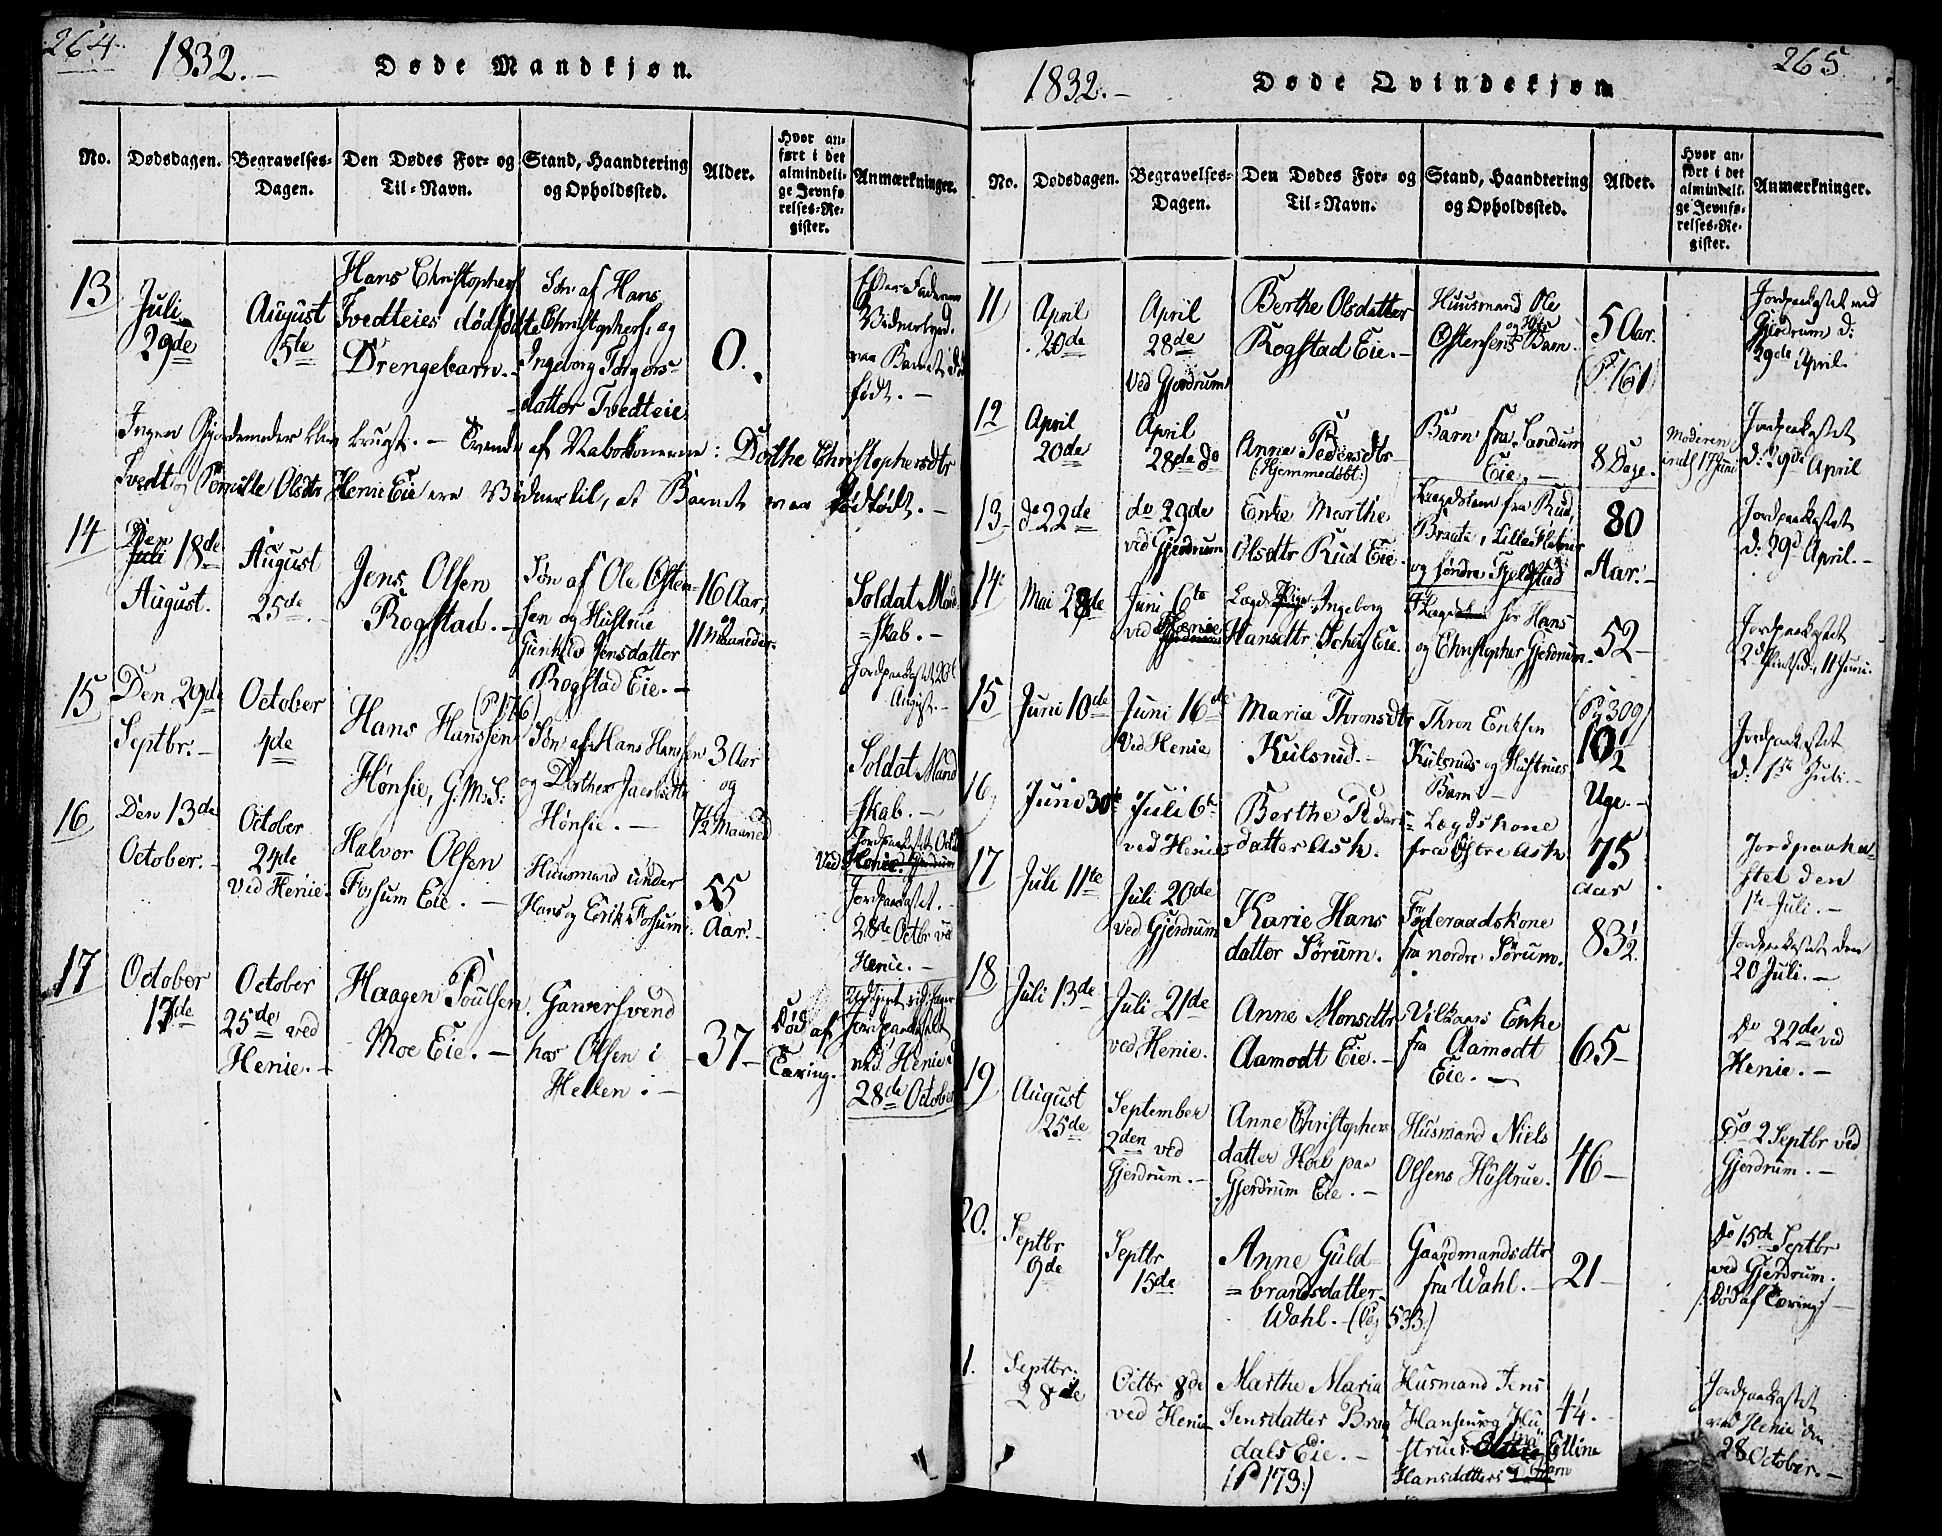 264.
1832.-
Døde Mandkjøn.
No.
Dødsdagen.
Begravelses-
Dagen.
Den Dødes For- og
Til-Navn.
Stand, Haandtering
og Opholdssted.
Alder.
Hvor an-
ført i det
almindeli-
ge Jevnfø-
relses-Re-
gister.
Anmærkninger.
13
Juli
29de
August
5te
Hans Christophers
Tvedteies dødfødte
Drengebarn.-
Søn af Hans
Christophers. og
Ingeborg Torgers-
datter Tvedteie
0.
Barnet
født.-
Ingen
brugt.- af Nabokonerne: Dorthe Christophersdtr
Tvedt og Pernille Olsdtr Henie Eie ere Vidner til, at Barnet var dødfødt.-
14
Den
Juli 18de
August.
August
25de
Jens Olsen
Rogstad.-
Søn af Ole Østen-
sen og Hustrue
Gunhild Jensdatter
Rogstad Eie.-
16 Aar,
og
11 Maaneder.
Soldat Mand
=skab.-
Jordpaakastet 26
August.-
15
Den 29de
Septbr.-
October
4de
(P 176)
Hans Hanssen
Hønsie, G.M.S:
Søn af Hans Hanssen
og Dorthe Jacobsdtr
Hønsie.-
3 Aar
og
7½ Maaned
Soldat Mand
skab.-
Jordpaakastet Octb
Ved Henie. Gjerdrum
16
Den 13de
October.-
October
24de
Ved Henie.
Halvor Olsen
Fossum Eie.-
Huusmand under
Hans og Erik Fossum.
55
Aar.-
Jordpaakastet.-
28de Octbr ved
Henie.-
17
October
17de
October
25de ved
Henie.-
Haagen Poulsen
Moe Eie.-
Garversvend
hos Olsen i
Hellen.-
37-
Død af
Tæring.
Jordpaakastet
ved Henie d
28de October
265
1832.-
Døde Qvindekjøn
No.
Dødsdagen.
Begravelses-
Dagen.
Den Dødes For- og
Til-Navn.
Stand, Haandtering
og Opholdssted.
Alder.
Hvor an-
ført i det
almindeli-
ge Jevnfø-
relses-Re-
gister.
Anmærkninger.
11
April
20de
April
28de
Ved Gjerdrum
Berthe Olsdatter
Rogstad Eie.-
Huusmand Ole
Østensens Barn.
5 Aar.
(P. 161)
Jordpaakastet ved
Gjerdrum d:
29de April.
12
April
20de
April
28de do
Anne Pedersdtr
(:Hjemmedøbt:)
Barn fra Sandum
Eie,-
8 Dage.
Moderen
indl 17 Juni
Jordpaakastet
d: 29de April
13
do 22de
do 29de
ved Gjerdrum
Enke Marthe
Olsdtr Rud Eie.
Lægdslem fra Rud,
Braate, Lille
og søndre Fjeldstad
80
Aar.-
Jordpaakastet
d: 29d April.-
14
Mai 28de
Juni 6te
ved Henie
Lægd Pige Ingeborg
Hansdtr Eie.
for Hans
og Christopher Gjerdrum.
52-
Jordpaakastet
2d 11 Juni.
15
Juni 10de
Juni 16de
Ved Henie
Maria Thronsdtr
Kulsrud.-
Thron Eriksen
Kulsruds og Hustrues
Barn.-
(Pg 309)
10½
Uge.-
Jordpaakastet
d: 1ste Juli.-
16
Juni 30te
Juli 6te
ved Henie
Berthe Peders=
datter Ask.
Lægdskone
fra Østre Ask.
75
Aar
Jordpaaka-
stet den
1ste Juli.-
17
Juli 11te
Juli 20de
ved Gjerdrum
Karie Hans
datter Sørum.
Føderaadskone
fra nordre Sørum.
83½
Jordpaakastet den
20 Juli.-
18
Juli 13de
Juli 21de
ved Henie.
Anne Monsdtr
Aamodt Eie.-
Vilkaars Enke
fra Aamodt
Eie.-
65-
Do 22de ved
Henie.-
19
August
25de
September
2den ved
Gjerdrum.-
Anne Christophers
datter Hoel paa
Gjerdrum Eie.-
Husmand Niels
Olsens Hustrue.
46-
Do 2 Septbr ved
Gjerdrum.-
20.
Septbr
9de
Septbr
15de
Anne Guld-
=brandsdatter
Wahl.-(Pg 533:)
Gaardmandsdtr
fra Wahl.-
21-
Do 15de Septbr
ved Gjerdrum.
Død af Tæring
1.
Septbr.
28de
Octbr 8de
ved Henie
Marthe Maria
Jensdatter Brag
dals Eie.-
(P 173:)
Husmand Jens
Hansens og Hu
strues Elline
Hansdatters Barn
44.-
Jordpaakastet
ved Henie den
28 October.-